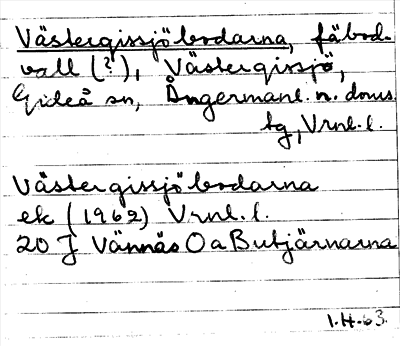 Västergissjöbodarna, fäbod-
vall (?), Västergissjö,
Gideå sn, Ångermanl. n. doms.
tg, Vrnl. l.
Västergissjöbodarna
ek (1962) Vrnl. l.
20 J Vännäs O a Butjärnarna
1.H.63.